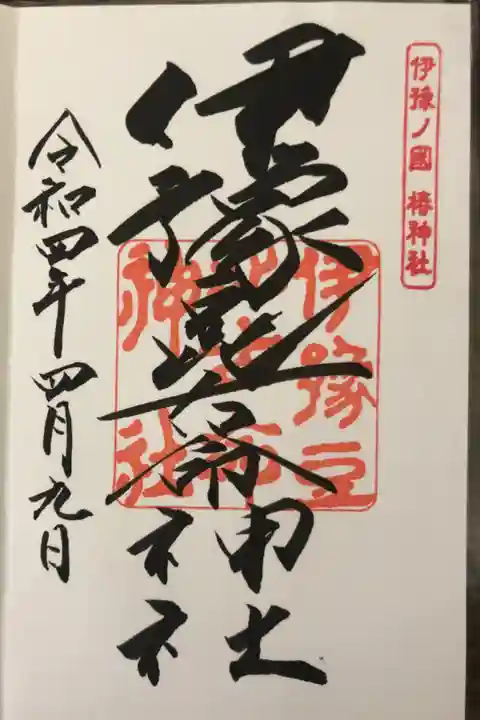 伊豫ノ國 椿神社
伊豫豆比古命神社
伊豫豆
比古命
神社
令和四年四月九日